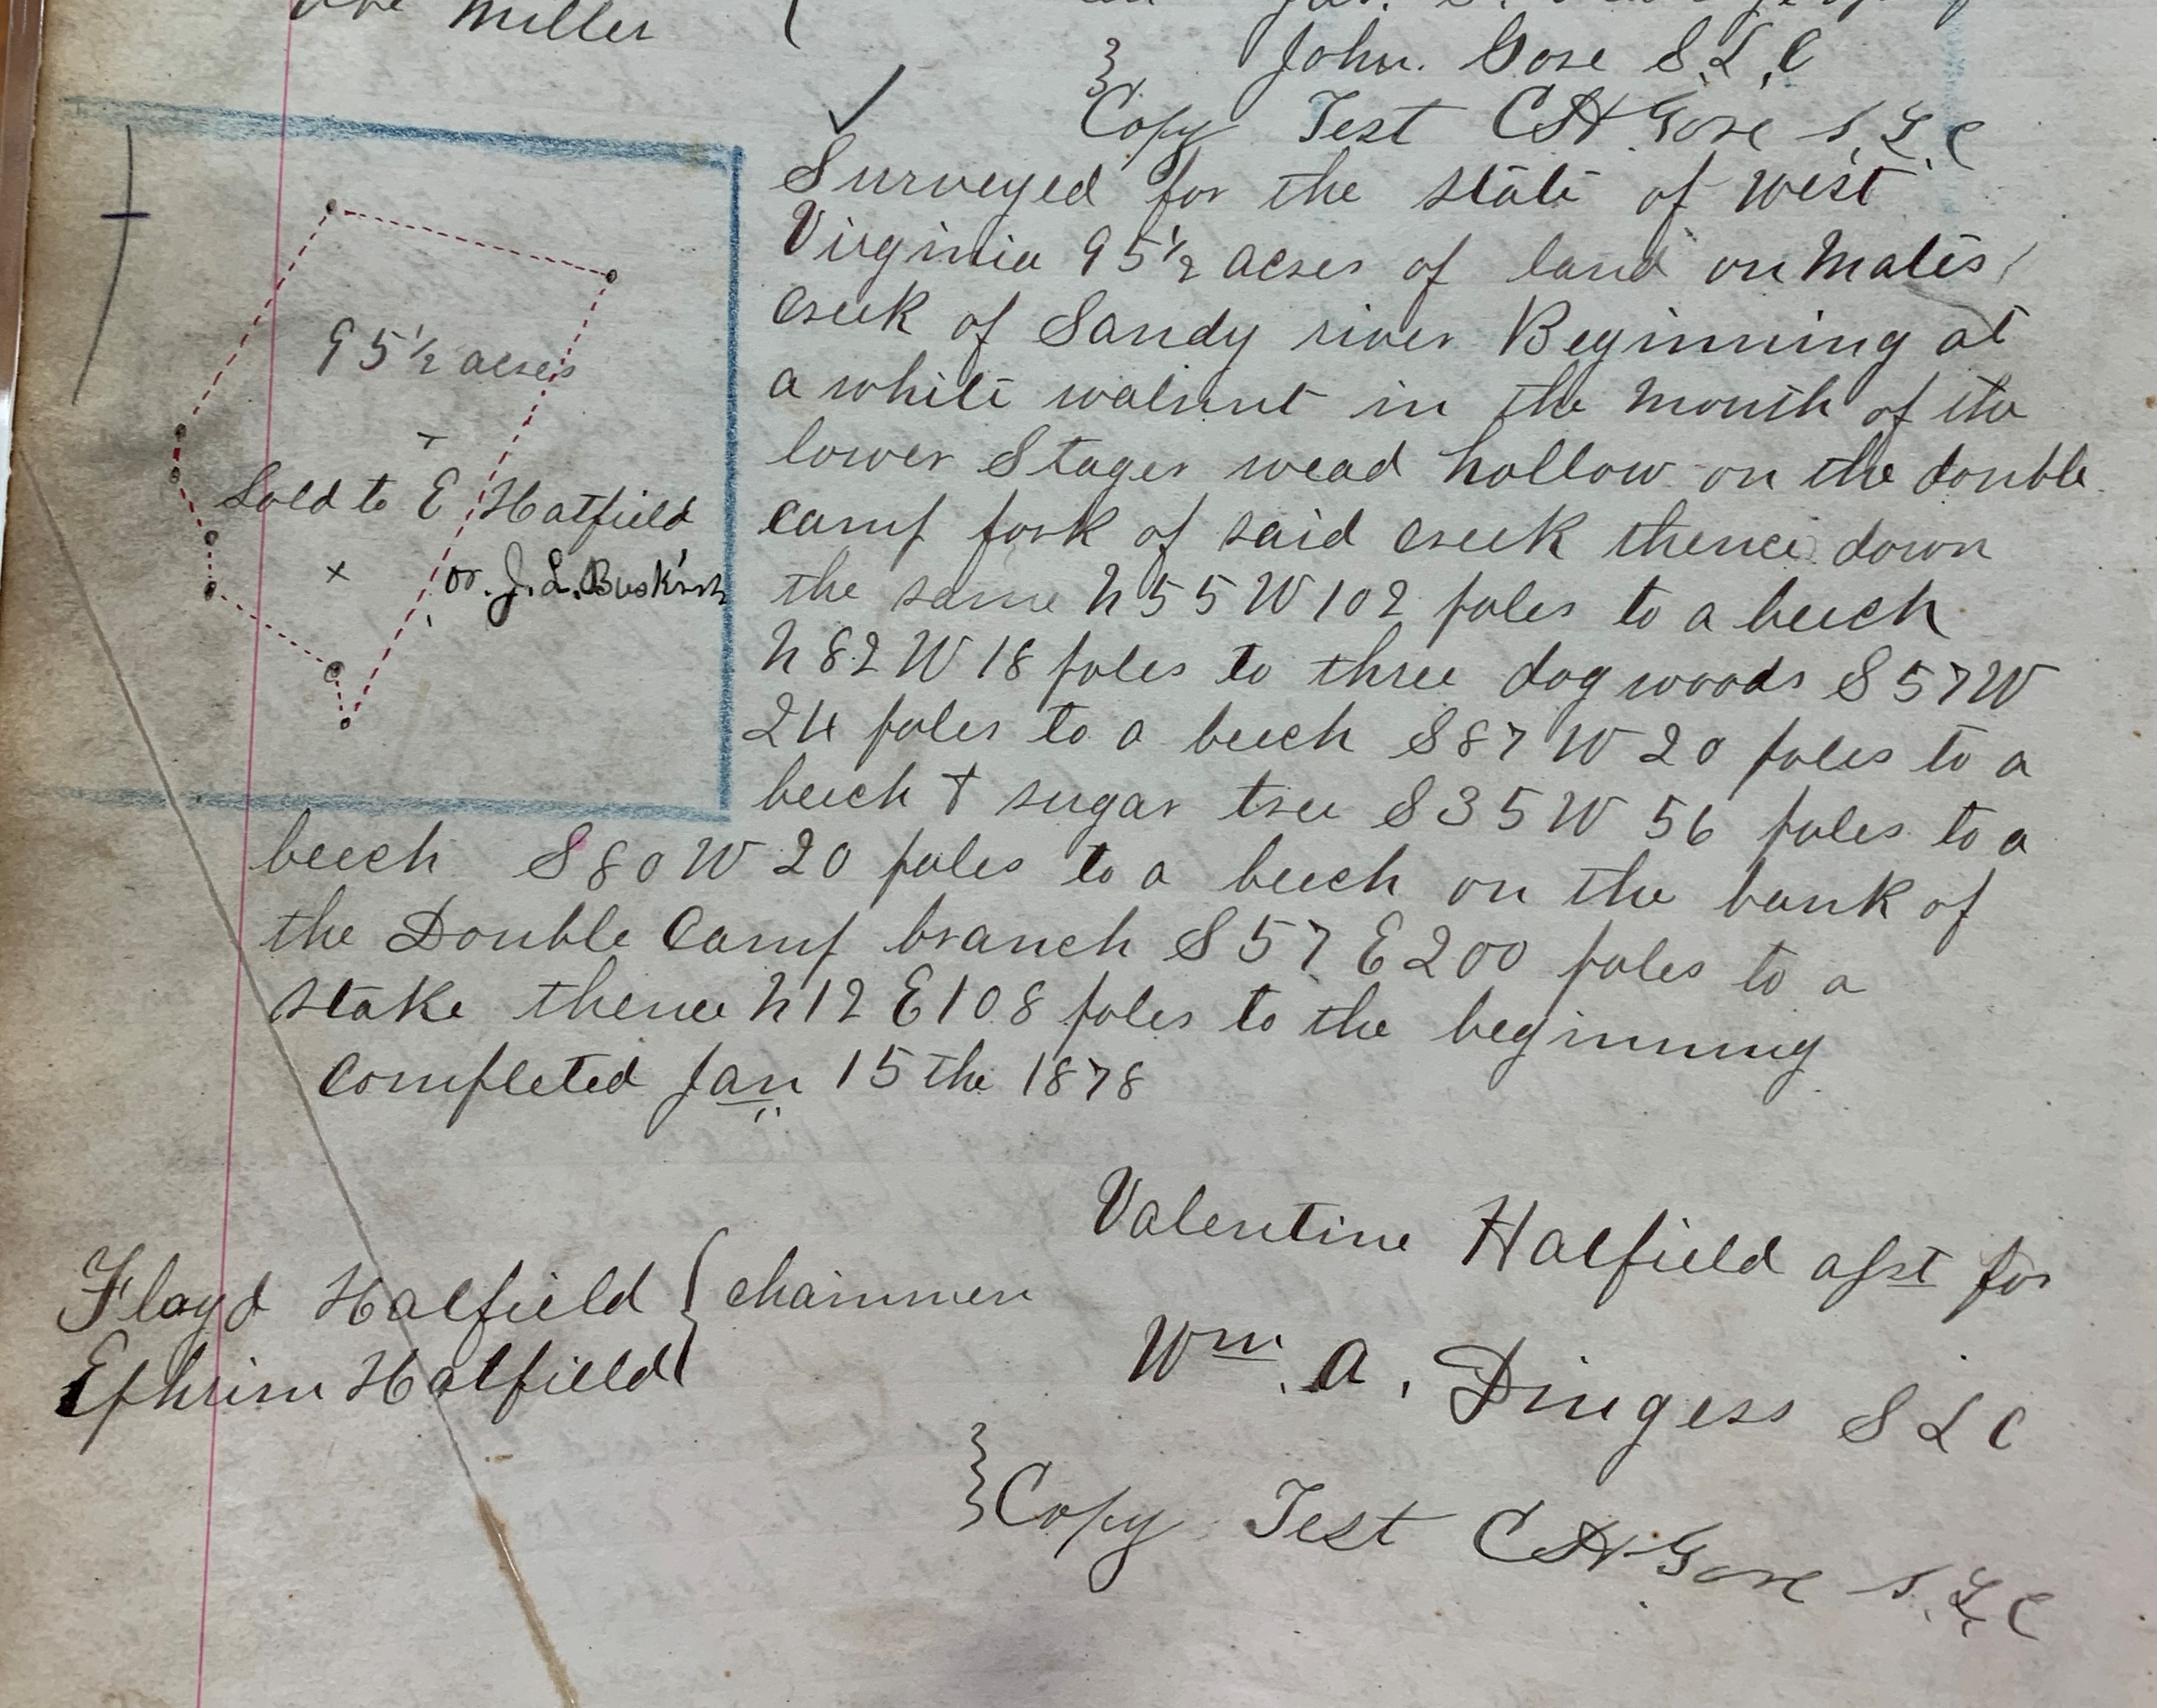 Miller
John. Gose S.L.C
Copy Test C H Gose S.L.C
Surveyed for the state of West
Virginia 95½ acres of land on Mates
creek of Sandy river Beginning at
a white walnut in the mouth of the
lower Stager wead hollow on the double
camp fork of said creek thence down
the same N55W102 poles to a beech
N82W18 poles to three dogwoods S57W
24 poles to a beech S87W20 poles to a
beech + sugar tree S35W 56 poles to a
beech S80W20 poles to a beech on the bank of
the Double Camp branch S57E200 poles to a
stake thence N12E108 poles to the beginning
completed Jan 15the 1878
95½ acres
Sold to E Hatfield
or. J. L. Buskirk
Valentine Hatfield asst for
Wm. A. Dingess SLC
Floyd Hatfield } chainmen
Ephrim Hatfield
Copy Test C H Gose S.L.C